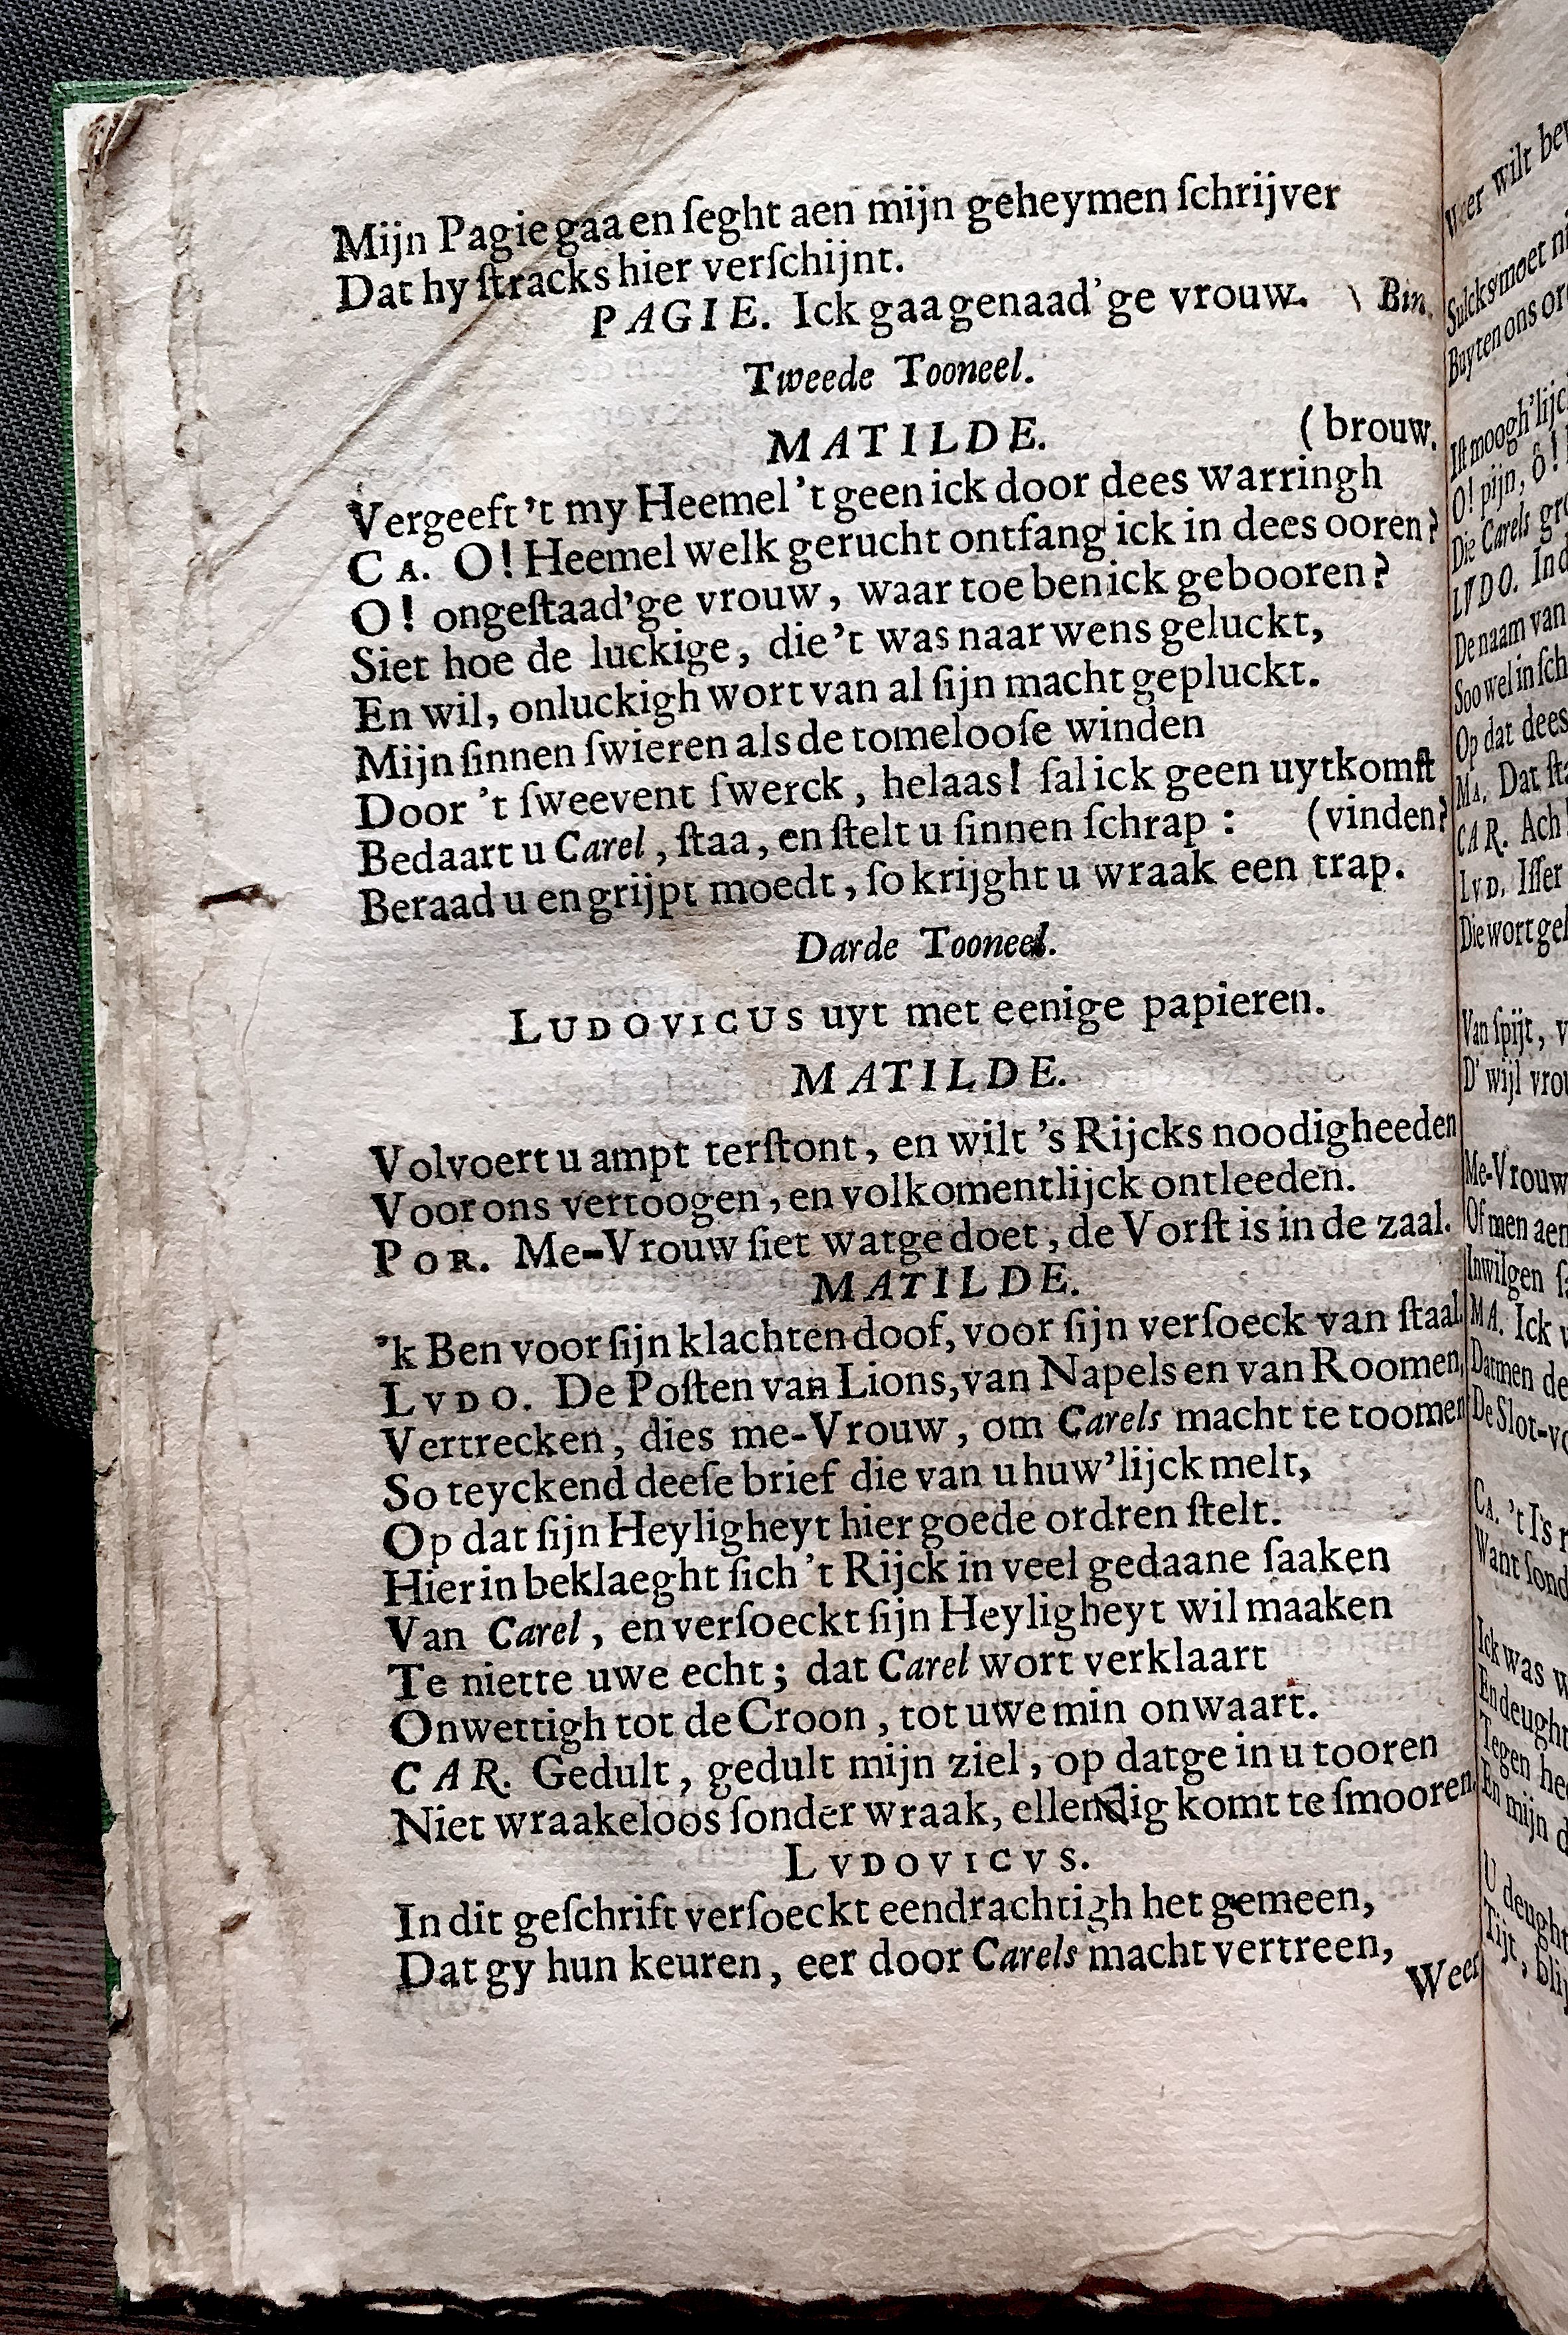 Mijn Pagie gaa en ſeght aen mijn geheymen ſchrijver
Dat hy ſtracks hier verſchijnt.
PAGIE. Ick gaa genaad'ge vrouw. \ Bin.
Tweede Tooneel.
MATILDE. (brouw.
Vergeeft 't my Heemel 't geen ick door dees warringh
CA. O! Heemel welk gerucht ontfang ick in dees ooren?
O! ongeſtaad'ge vrouw, waar toe ben ick gebooren?
Siet hoe de luckige, die 't was naar wens geluckt,
En wil, onluckigh wort van al ſijn macht gepluckt.
Mijn ſinnen ſwieren als de tomelooſe winden
Door 't ſweevent ſwerck, helaas! ſal ick geen uytkomſt
Bedaart u Carel, ſtaa, en ſtelt u ſinnen ſchrap: (vinden?
Beraad u en grijpt moedt, ſo krijght u wraak een trap.
Darde Tooneel.
LUDOVICUS uyt met eenige papieren.
MATILDE.
Volvoert u ampt terſtont, en wilt 's Rijcks noodigheeden
Voor ons vertoogen, en volkomentlijck ontleeden.
POR. Me-Vrouw ſiet watge doet, de Vorſt is in de zaal.
MATILDE.
'k Ben voor ſijn klachten doof, voor ſijn verſoeck van ſtaal.
LVDO. De Poſten van Lions, van Napels en van Roomen,
Vertrecken, dies me-Vrouw, om Carels macht te toomen
So teyckend deeſe brief die van u huw'lijck melt,
Op dat ſijn Heyligheyt hier goede ordren ſtelt.
Hier in beklaeght ſich 't Rijck in veel gedaane ſaaken
Van Carel, en verſoeckt ſijn Heyligheyt wil maaken
Te niette uwe echt; dat Carel wort verklaart
Onwettigh tot de Croon, tot uwe min onwaart.
CAR. Gedult, gedult mijn ziel, op datge in u tooren
Niet wraakeloos ſonder wraak, ellendig komt te ſmooren.
LVDOVICVS.
In dit geſchrift verſoeckt eendrachtigh het gemeen,
Dat gy hun keuren, eer door Carels macht vertreen,
Weer